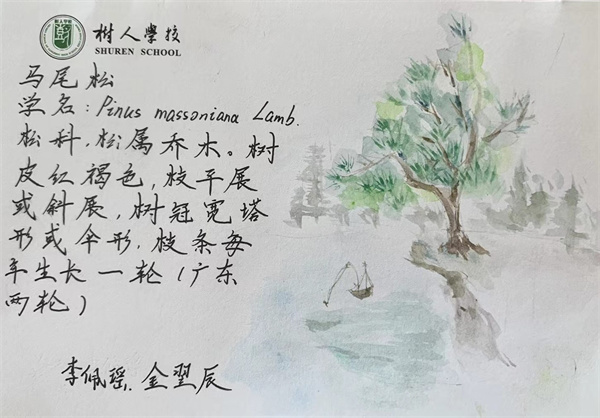 树人學校
SHUREN SCHOOL
马尾松
学名:Pinus massoniana Lamb.
松科,松属乔木。树
皮红褐色,枝平展
或斜展,树冠宽塔
形或伞形,枝条每
年生长一轮(广东
两轮)
李佩瑶.金翌辰